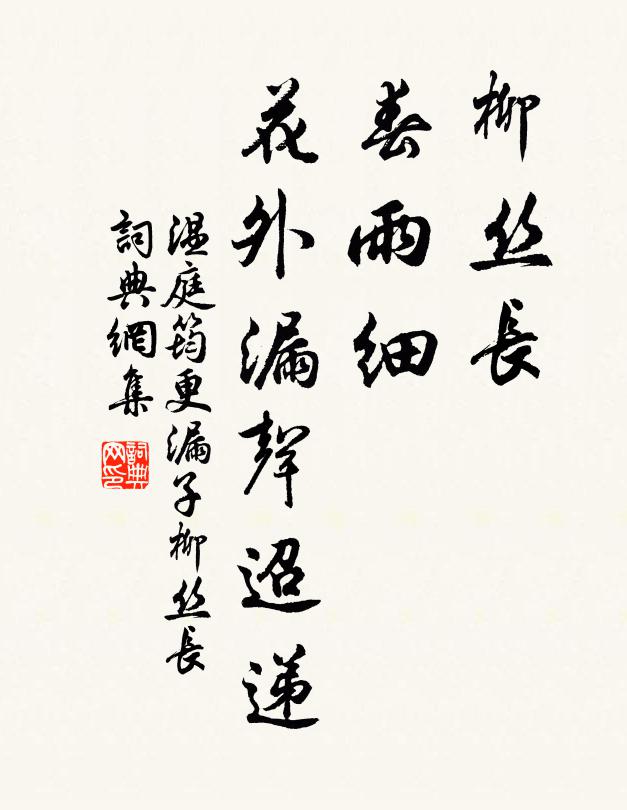 柳丝長
春雨細
花外漏聲迢遞
温庭筠更漏子柳丝長
詞典網集
詞典网印